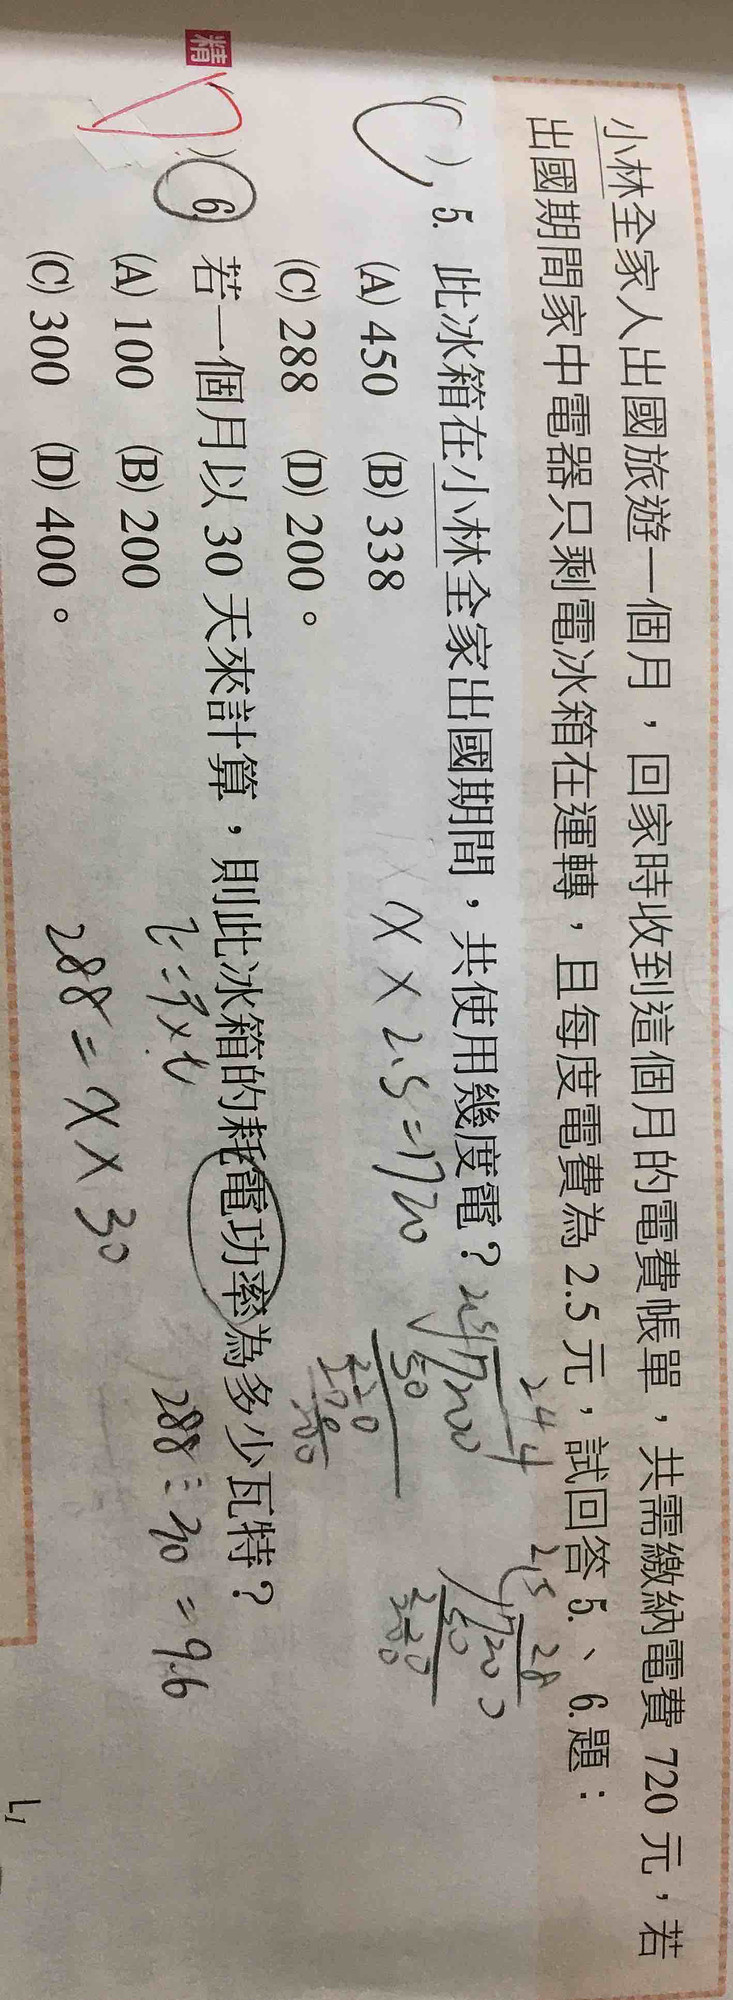 小林全家人出國旅遊一個月，回家時收到這個月的電費帳單，共需繳納電費 720 元，若
出國期間家中電器只剩電冰箱在運轉，且每度電費為 2.5 元，試回答 5.、6.題：
(C) 5. 此冰箱在小林全家出國期間，共使用幾度電？
(A) 450 (B) 338
(C) 288 (D) 200。
x × 2.5 = 720
精
6 若一個月以 30 天來計算，則此冰箱的耗電功率為多少瓦特？
(A) 100 (B) 200
(C) 300 (D) 400。
288 = x × 30
288 ÷ 30 = 9.6